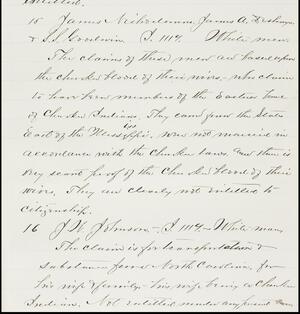 Entitled.
15 James Nicholson, James A.
& S.S. Goodwin P. 1114 White men
The claims of these men are based upon
the Cherokee blood of their wives - who claim
to have been members of the Eastern
of Cherokee Indians. They came from the States
East of the Mississippi, were not married in
accordance with the Cherokee laws and there is
very scant proof of the Cherokee blood of their
wives. They are clearly not entitled to
citizenship.
16 J. W. Johnson - P. 1114 - White man
The claim is for transportation &
subsistence from North Carolina, for
his wife & family - his wife being a Cherokee
Indian. Not entitled under any present